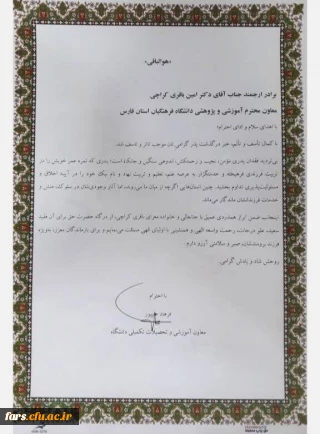 «هوالباقی»
برادر ارجمند جناب آقای دکتر امین باقری کراچی
معاون محترم آموزشی و پژوهشی دانشگاه فرهنگیان استان فارس
با اهدای سلام و ادای احترام؛
با کمال تأسف و تأثر، خبر درگذشت پدر گرامی تان موجب تاثر و تاسف شد.
بی‌تردید فقدان پدری مؤمن، نجیب و زحمتکش، اندوهی سنگین و جانکاه است؛ پدری که ثمره عمر خویش را در
تربیت فرزندی فرهیخته و خدمتگزار به عرصه علم، تعلیم و تربیت نهاد و نام نیک خود را در آیینه اخلاق و
مسئولیت‌پذیری تداوم بخشید. چنین انسان‌هایی اگرچه از میان ما می‌روند، اما آثار وجودی‌شان در سلوک، منش و
خدمات فرزندانشان ماندگار می‌ماند.
اینجانب ضمن ابراز همدردی عمیق با جنابعالی و خانواده معزای باقری کراچی، از درگاه حضرت حق برای آن فقید
سعید، علو درجات، رحمت واسعه الهی و همنشینی با اولیای الهی مسئلت می‌نمایم و برای بازماندگان معزز، بویژه
فرزند برومندشان، صبر و سلامتی آرزو دارم.
روحش شاد و یادش گرامی.
با احترام
فرهاد
معاون آموزشی و تحصیلات تکمیلی دانشگاه
fars.cfu.ac.ir